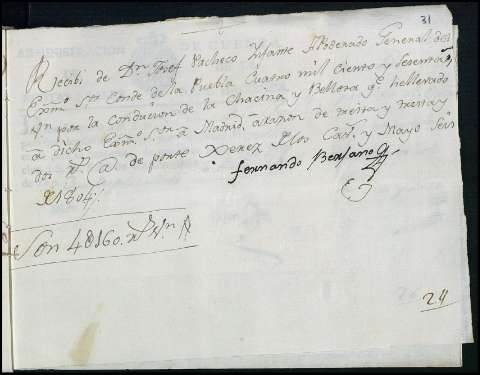 31
Recibi de Dn. Josef Pacheco Ynfante Apoderado General del
Exmo. Sor. Conde de la Puebla Cuatro mil Ciento y Sesenta rs.
Vn por la Conduccion de la Chacina y Bellota qe. he llevado
a dicho Exmo. Sor. a Madrid, a razon de treita y
dos rs. @. de porte Xerez Cavs. y Mayo Seis
de 1804,,
fernando Berjano
Son 4160. rs. Vn
24